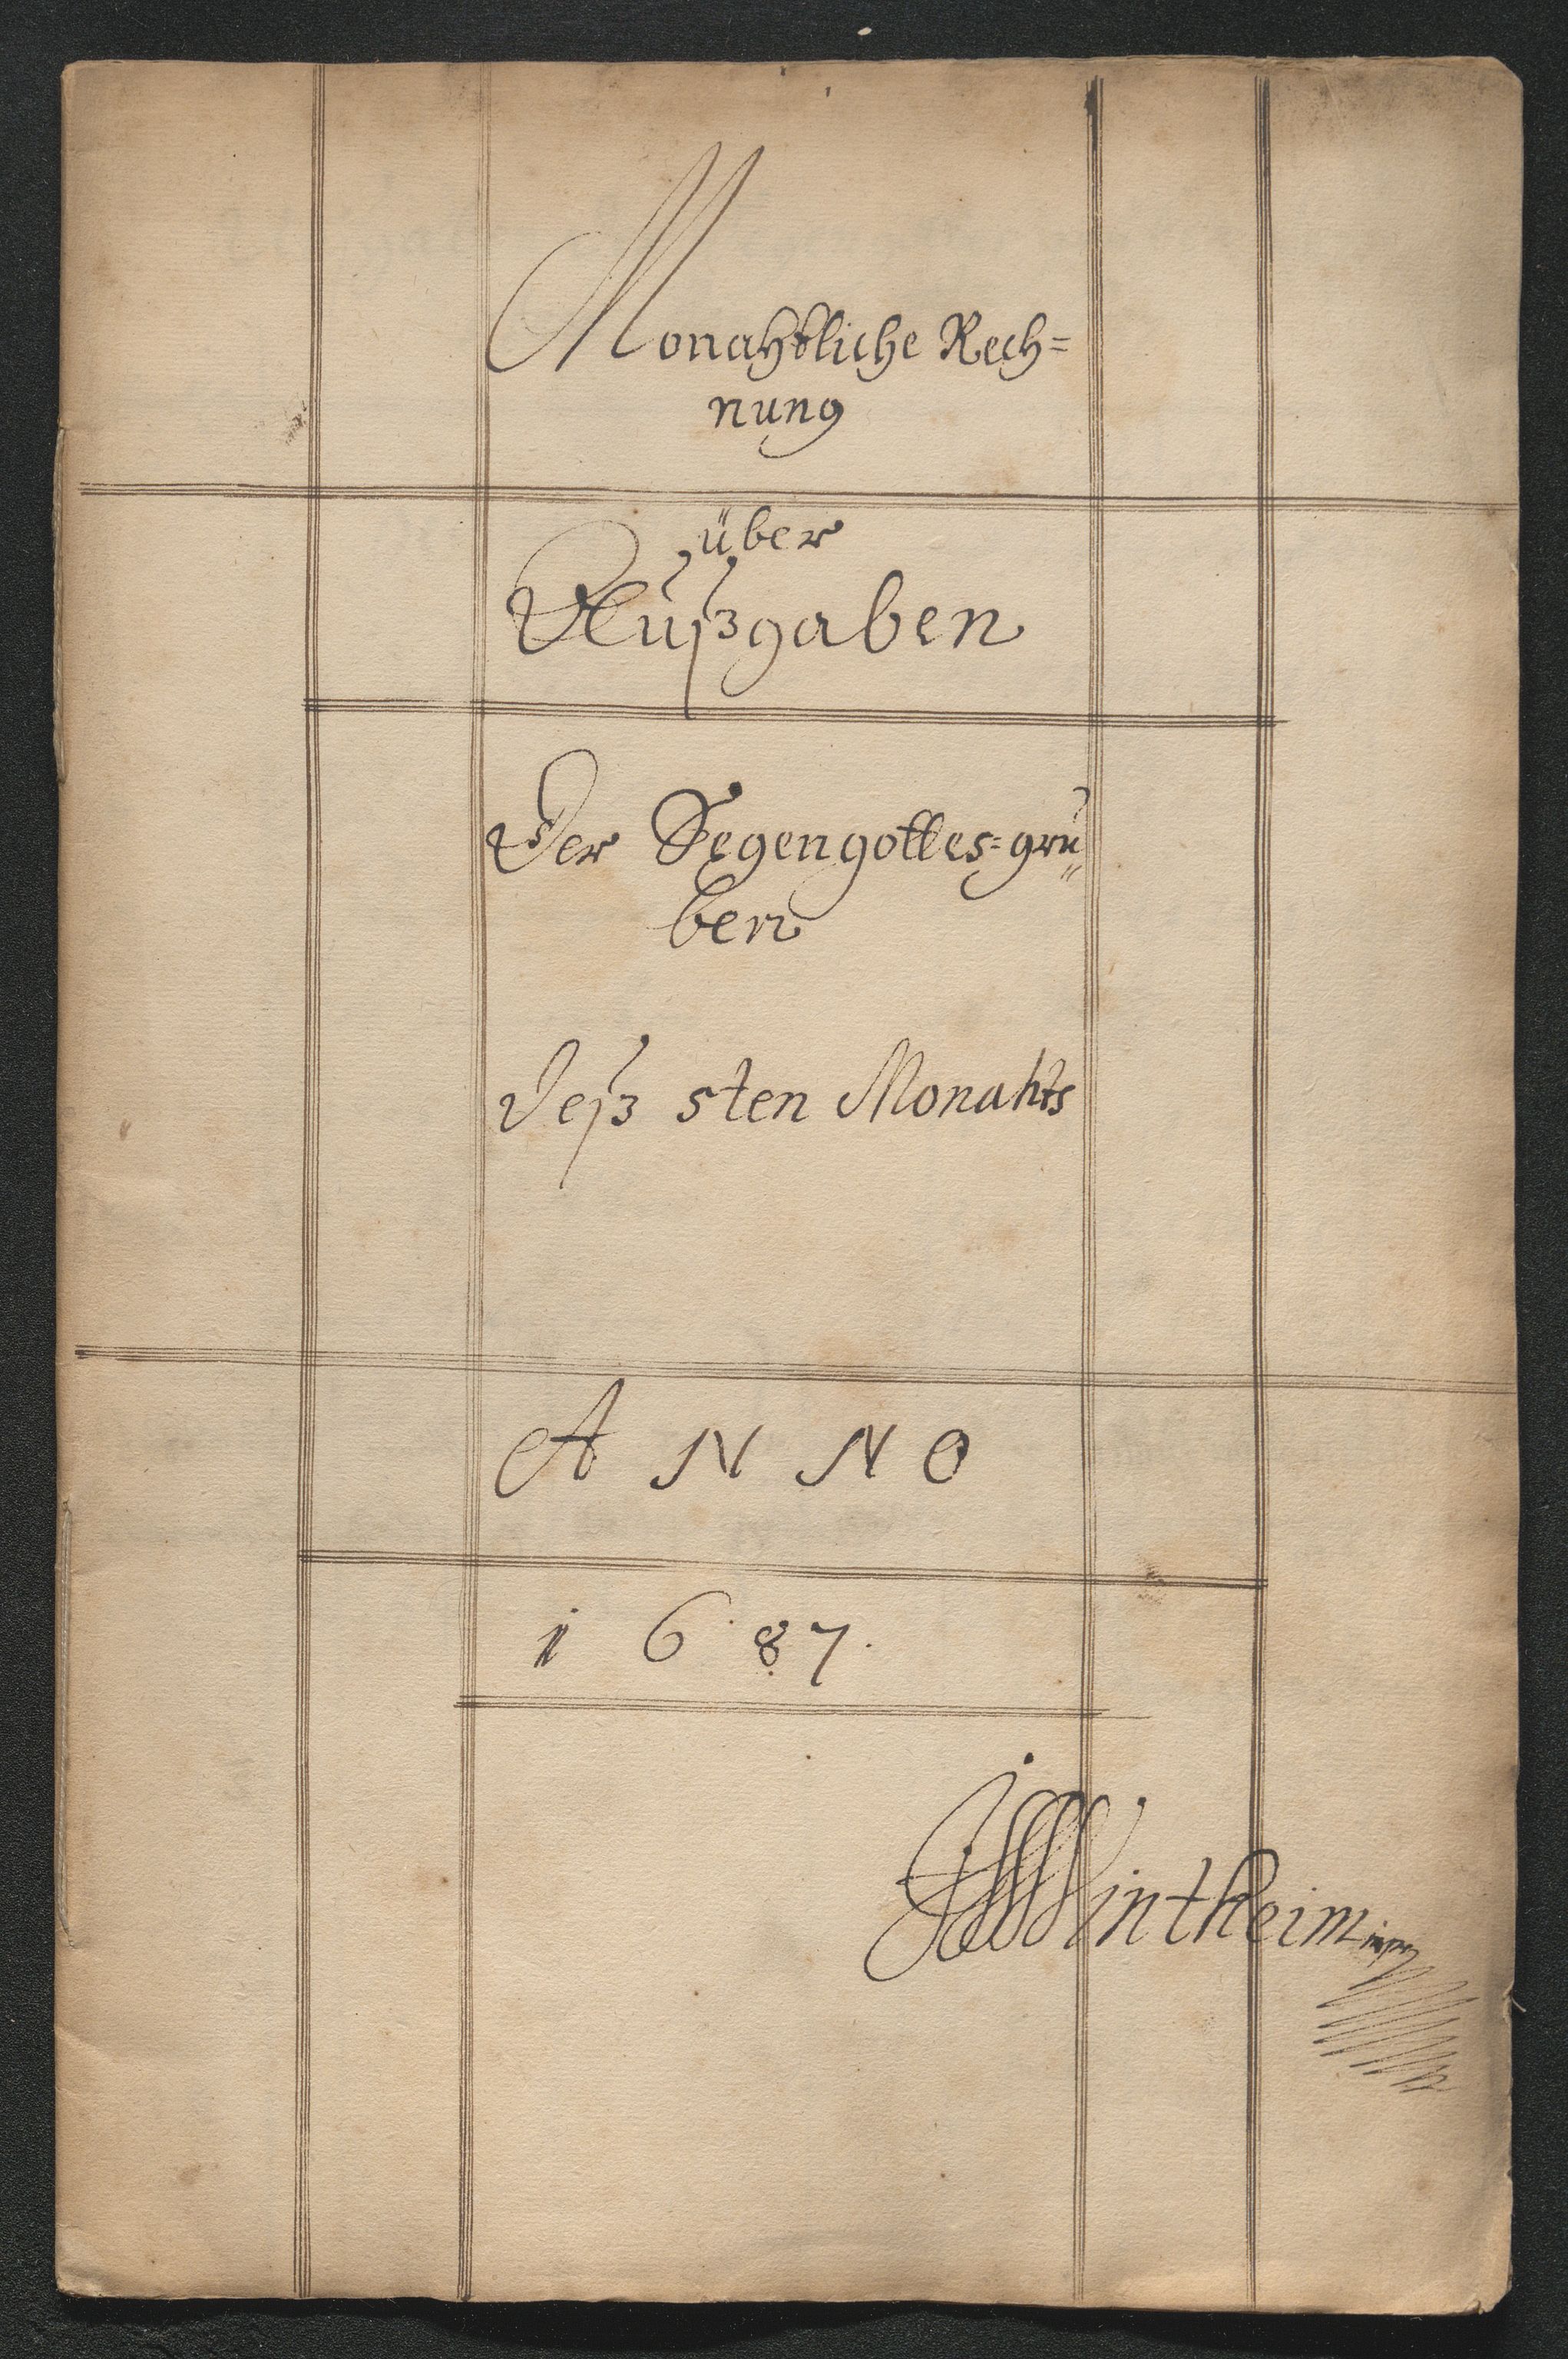 Monahtliche Rech=
nung
über
Außgaben
Der Segengottes=gru
ben
Deß 5ten Monahts
ANNO
1687.
Wintheim mp